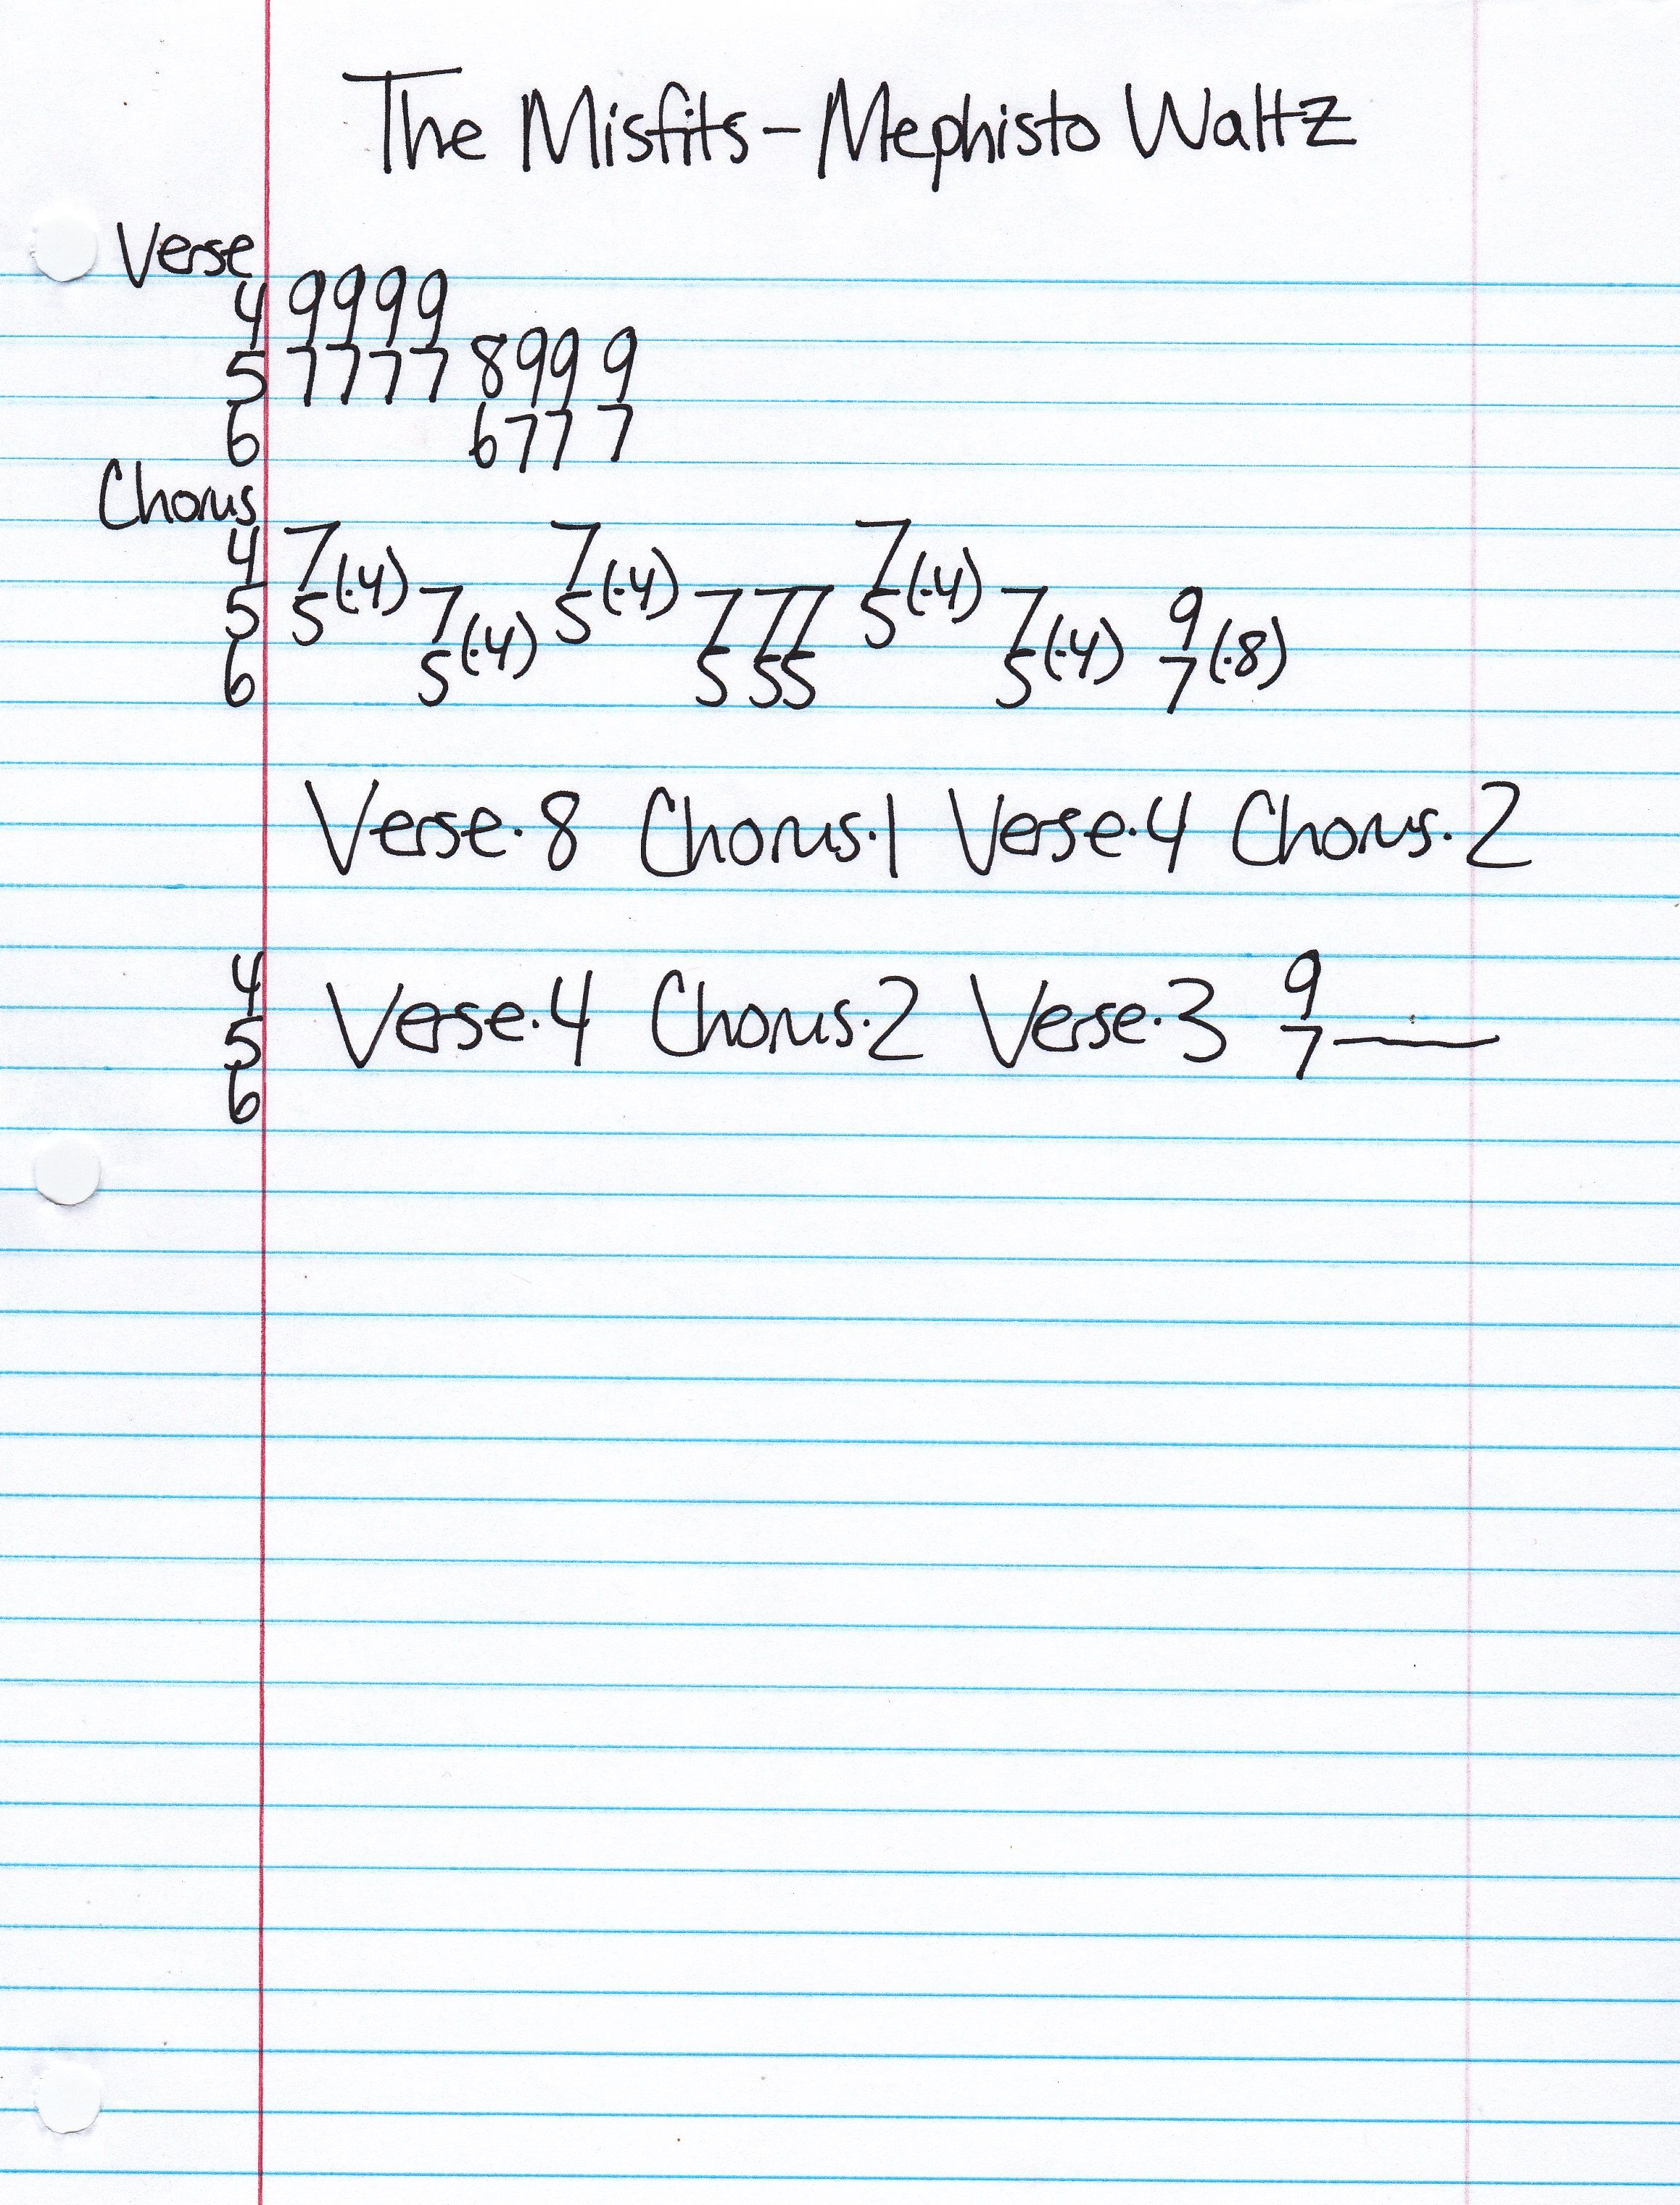 The Misfits - Mephisto Waltz
Verse
4 9 9 9 9
5 7 7 7 7 8 9 9 9
6 6 7 7 7
Chorus
4 7(·4) 7(·4) 7(·4)
5 5 7(·4) 5 7 7 7 5 7(·4) 9(·8)
6 5 5 5 5 5 7
Verse·8 Chorus·1 Verse·4 Chorus·2
4 9
5 Verse·4 Chorus·2 Verse·3 7—
6